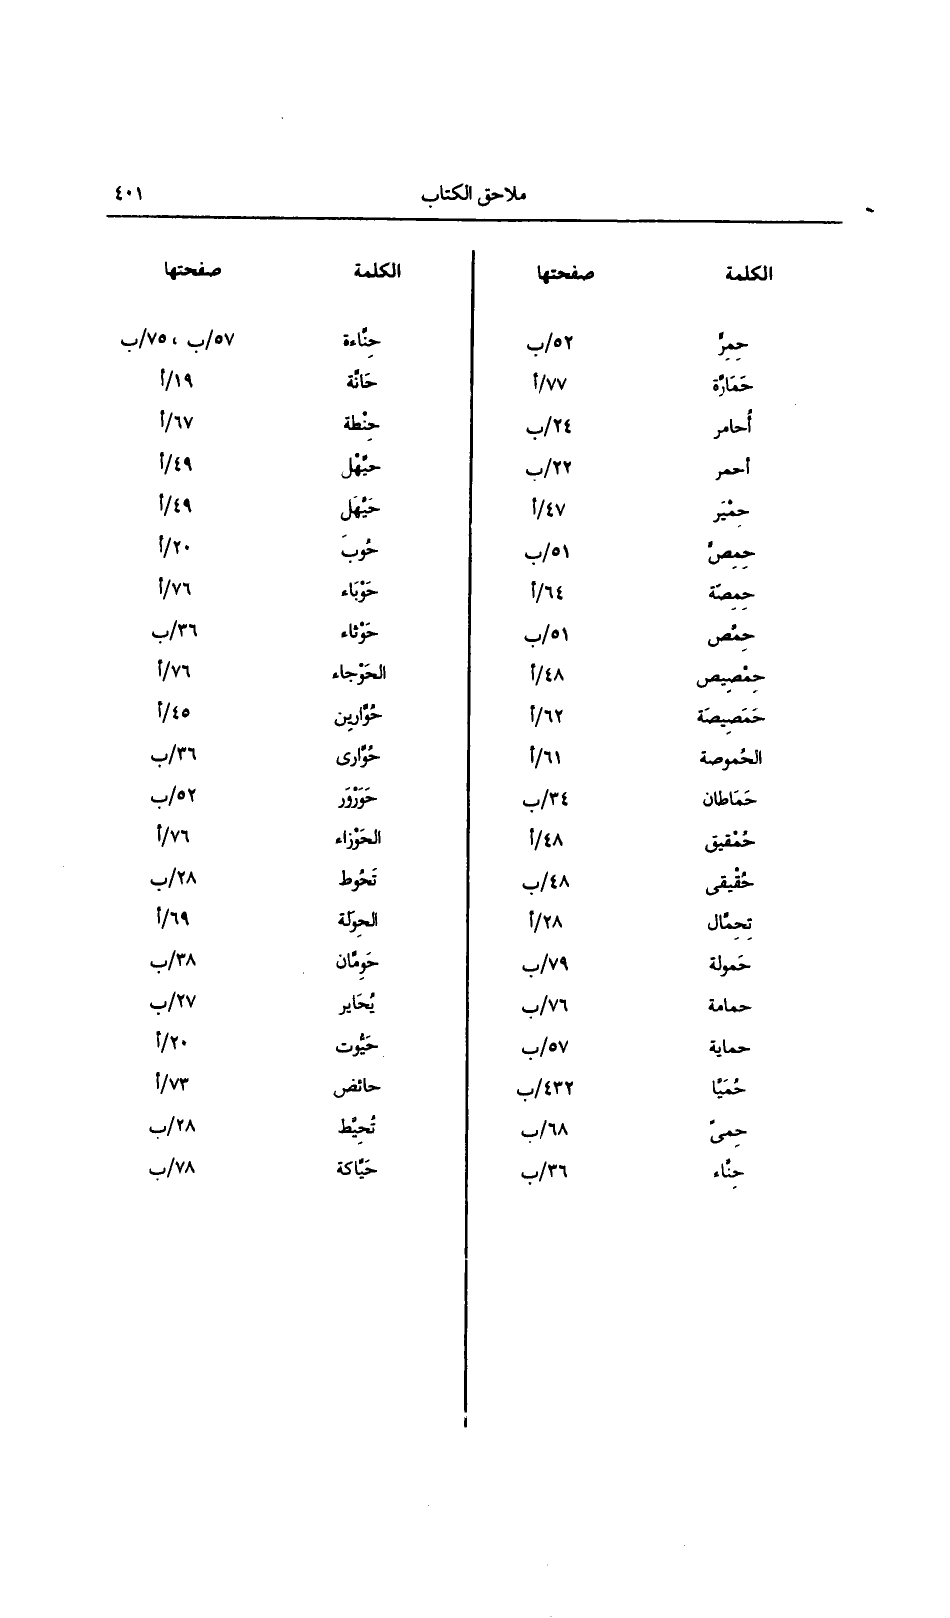 ملاحق الكتاب ٤٠١
الكلمة صفحتها
حِمِرٌّ ٥٢/ب
حَمَارَّة ٧٧/أ
أُحامر ٢٤/ب
أحمر ٢٢/ب
حِمْيَر ٤٧/أ
حِمِصٌّ ٥١/ب
حِمِصّة ٦٤/أ
حِمَّص ٥١/ب
حِمْصِيص ٤٨/أ
حَمَصِيصَة ٦٢/أ
الحُموصة ٦١/أ
حَمَاطان ٣٤/ب
حُمْقيق ٤٨/أ
حُقْيقى ٤٨/ب
تِحِمَّال ٢٨/أ
حَمولة ٧٩/ب
حمامة ٧٦/ب
حماية ٥٧/ب
حُمَيَّا ٤٣٢/ب
حِمىّ ٦٨/ب
حِنَّاء ٣٦/ب
الكلمة صفحتها
حِنَّاءة ٥٧/ب ، ٧٥/ب
حَانَّة ١٩/أ
حِنْطة ٦٧/أ
حيَّهْل ٤٩/أ
حَيْهَل ٤٩/أ
حُوبَ ٢٠/أ
حَوْبَاء ٧٦/أ
حَوْثاء ٣٦/ب
الحَوْجاء ٧٦/أ
حُوَّارين ٤٥/أ
حُوَّارى ٣٦/ب
حَوَرْوَر ٥٢/ب
الحَوْزاء ٧٦/أ
تَحُوط ٢٨/ب
الحِوَلَة ٦٩/أ
حَومَّان ٣٨/ب
يُحَاير ٢٧/ب
حَيُّوت ٢٠/أ
حائض ٧٣/أ
تُحِيَّط ٢٨/ب
حَيَّاكة ٧٨/ب